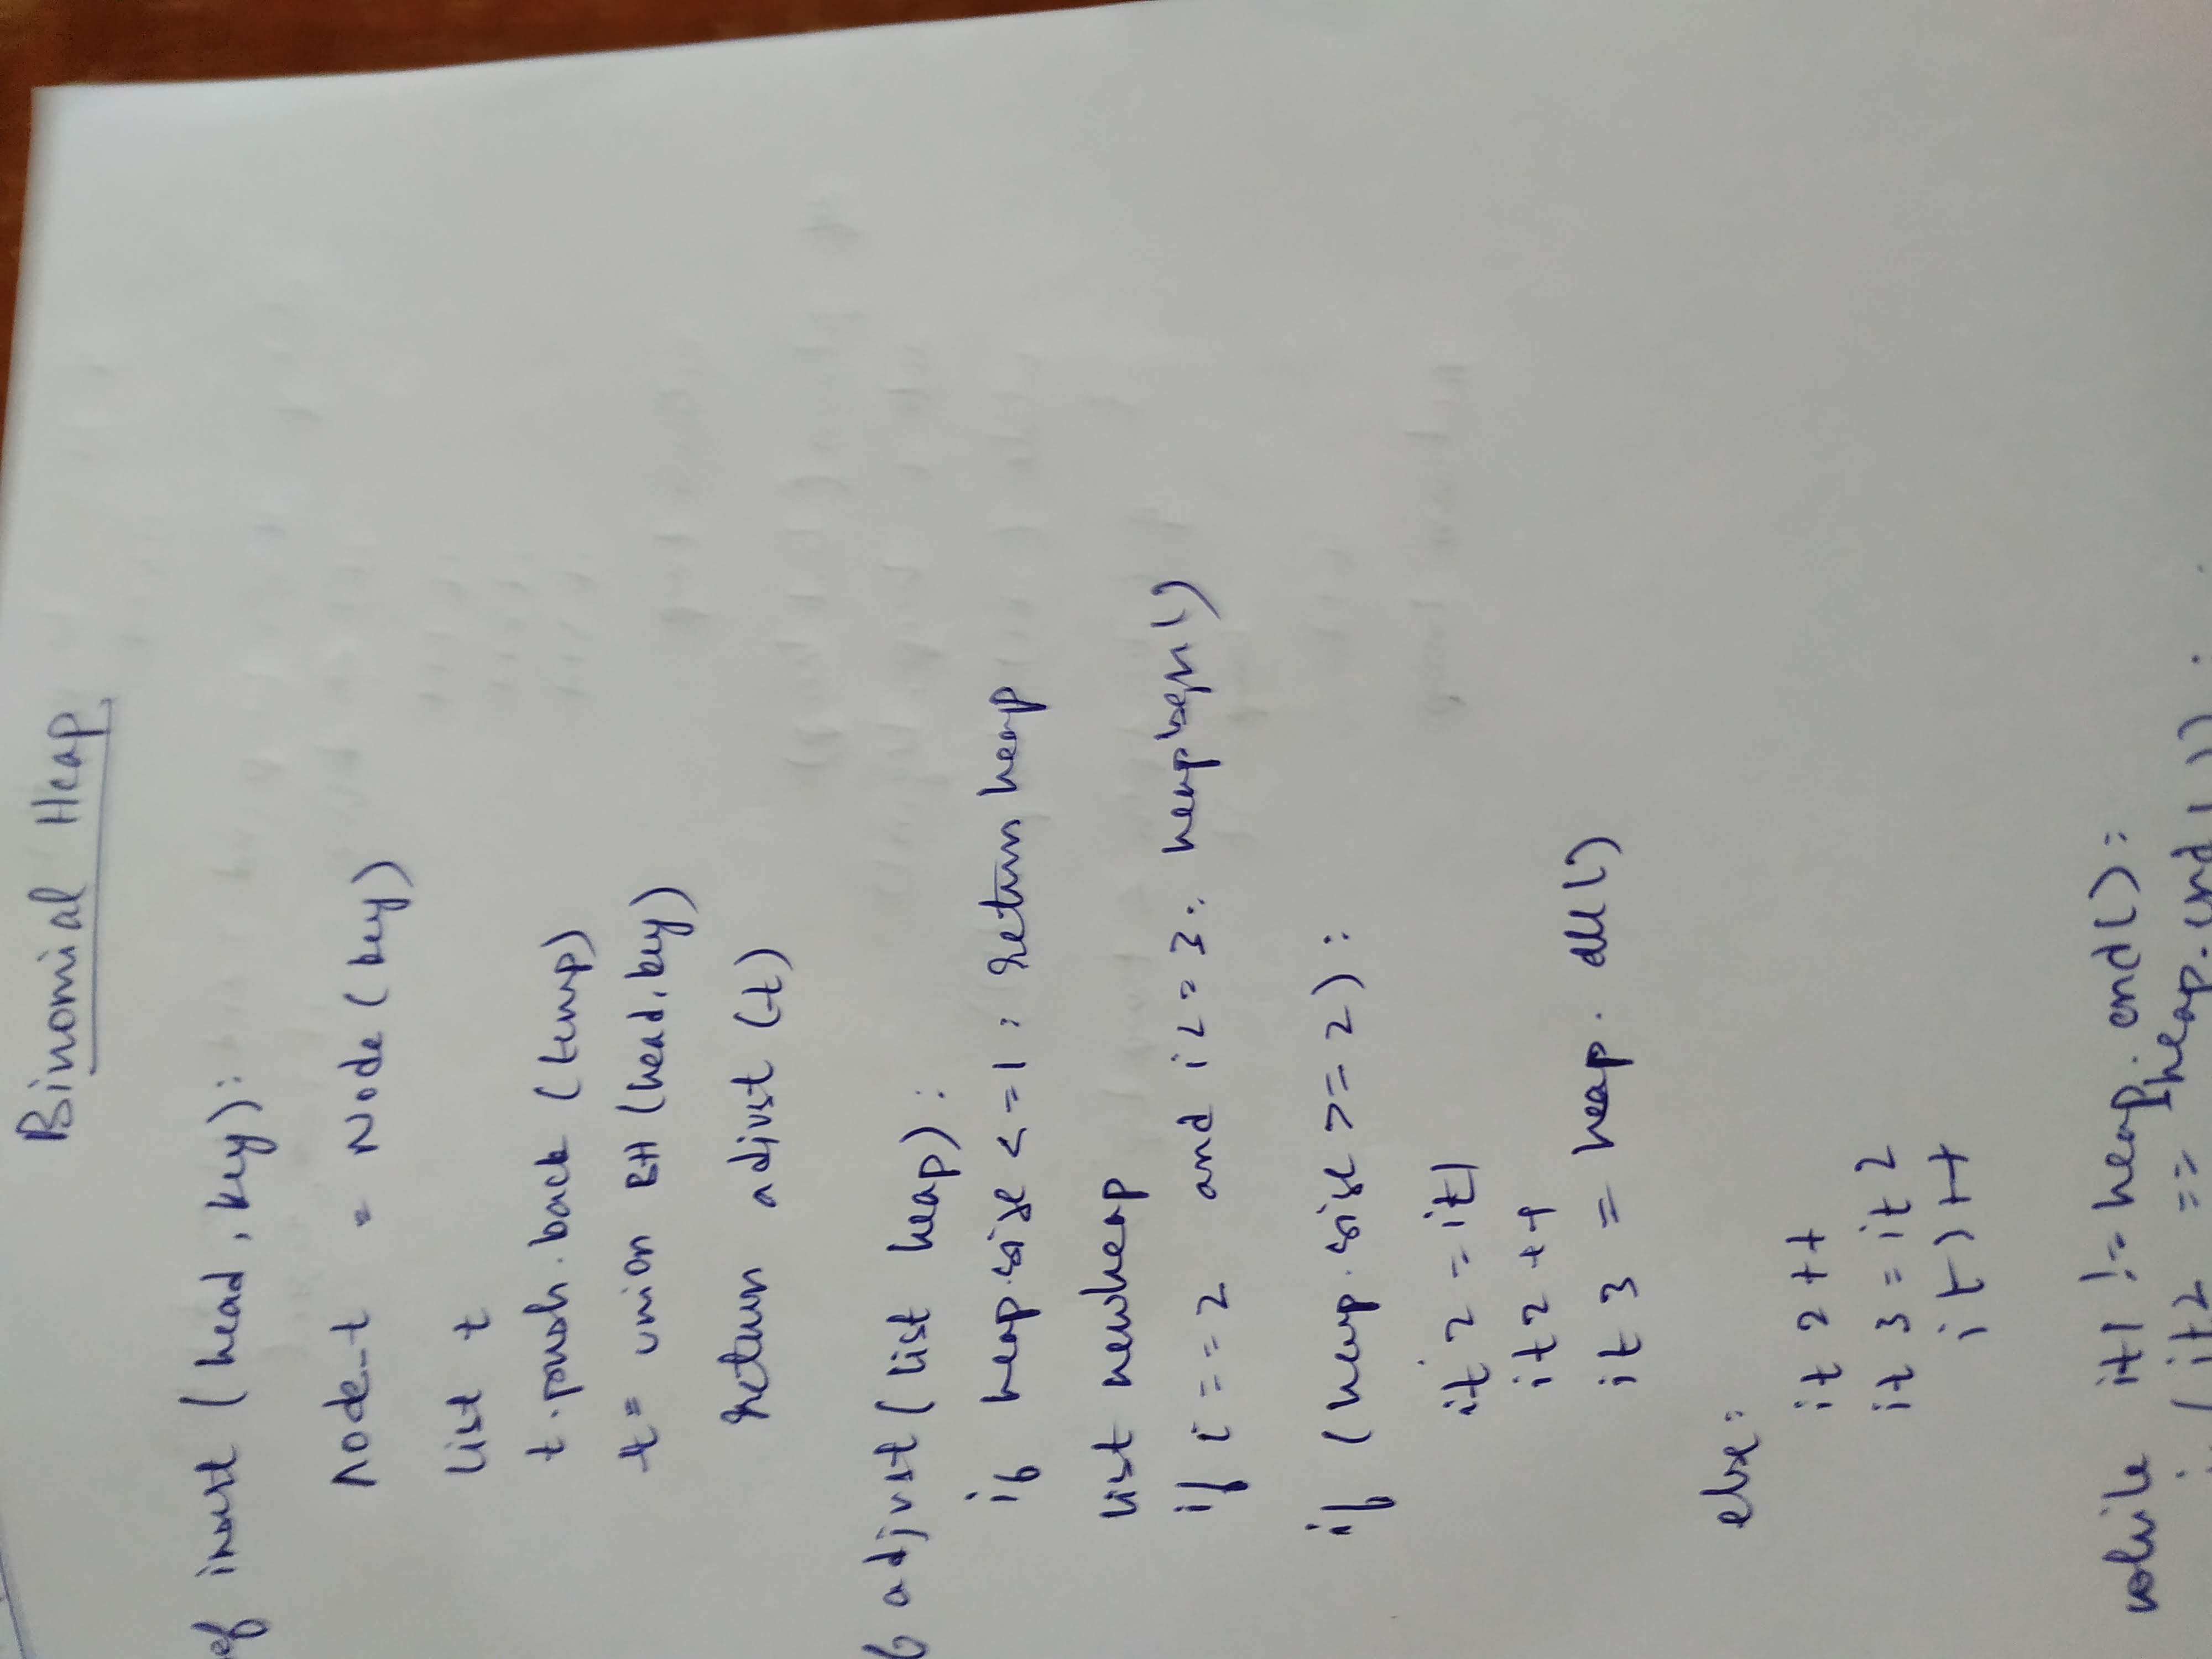 Binomial Heap
ef insert (head, key):
node_t = Node (key)
list t
t.push.back (temp)
t = union BH (head, key)
return adjust (t)
adjust (list heap):
if heap.size <=1: return heap
list newheap
if i==2 and i<=3:
if (heap.size >= 2):
it 2 = it1
it2 ++
it 3 = heap.
else:
it 2 ++
it 3 = it 2
++
while it1 != heap.end():
(it2 == heap.end())